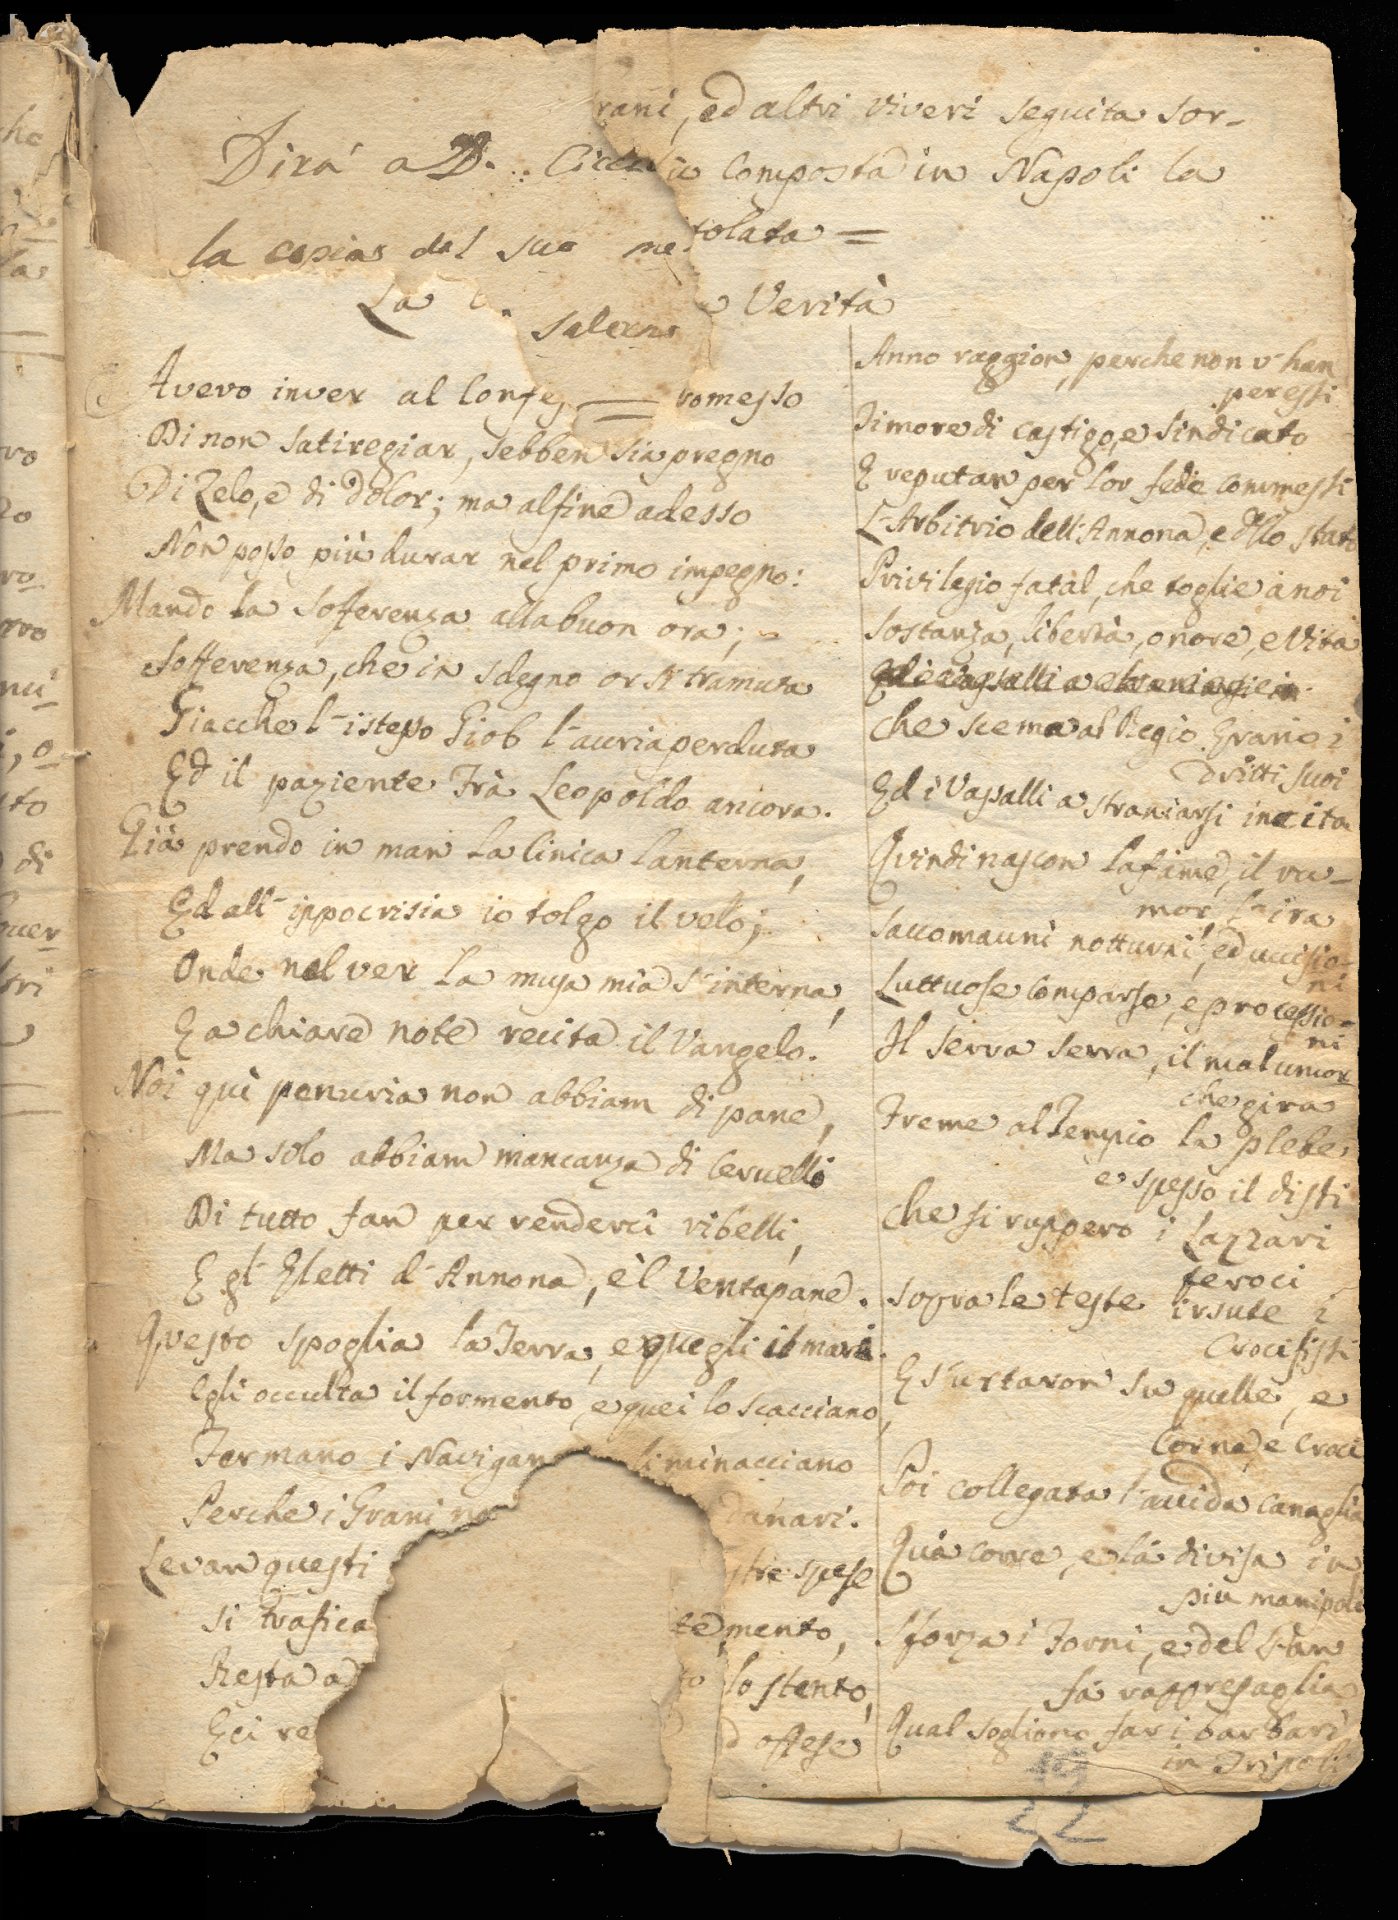 rani, ed altri viveri seguita sor-
Dirà a D. composta in Napoli la
la copia dal suo tolata =
La Verità
Salerno
Avevo inver al romesso
Di non satiregiar, sebben sia pregno
Di Zelo, e di dolor; ma alfine adesso
Non posso più durar nel primo impegno:
Mando la sofferenza alla buon ora;
Sofferenza, che in sdegno or si tramuta
Giacche l'istesso Giob l'auria perduta
Ed il paziente Frà Leopoldo ancora.
Già prendo in man la Cinica lanterna,
Ed all'ippocrisia io tolgo il velo;
Onde nel ver la musa mia s'interna,
E a chiare note recita il Vangelo.
Noi quì penuria non abbiam di pane,
Ma solo abbiam mancanza di Cervelli
Di tutto fan per renderci ribelli,
E gl'Eletti d'Annona, è'l Ventapane.
Questo spoglia la Terra, e quegli il mari.
Egli occulta il formento, e quei lo scacciano,
Fermano i Navigan li minacciano
Perche i Grani danari.
Levan questi stre spese
Si trafica mento,
Resta a lo stento,
E ci re offese
Anno raggion, perche non v'han
per essi
Timore di castigo, e sindicato
E reputan per lor fede commessi
L'Arbitrio dell'Annona, e dllo stato
Privilegio fatal, che toglie à noi
Sostanza, libertà, onore, e Vita
Che scema al Regio Erario i
dritti suoi
Ed i Vassalli a straniarsi incita
Quindi nascon la fame, il ru-
mor, l'ira
Saccomanni notturni, ed uccisio-
ni
Luttuose comparse, e processio-
ni
Il serra serra, il mal umor
che gira
Freme al Tempio la plebe,
e spesso il disti
Che si ruppero i Lazzari
feroci
Sopra le teste irsute i
Crocifisti
E s'urtaron su quelle, e
Corna, e Croci
Poi collegata l'avida canaglia
Quà corre, e là divisa in
più manipoli
Sforza i Forni, e del pan
fà rappresaglia
Qual sogliono far i barbari
in Tripoli
22